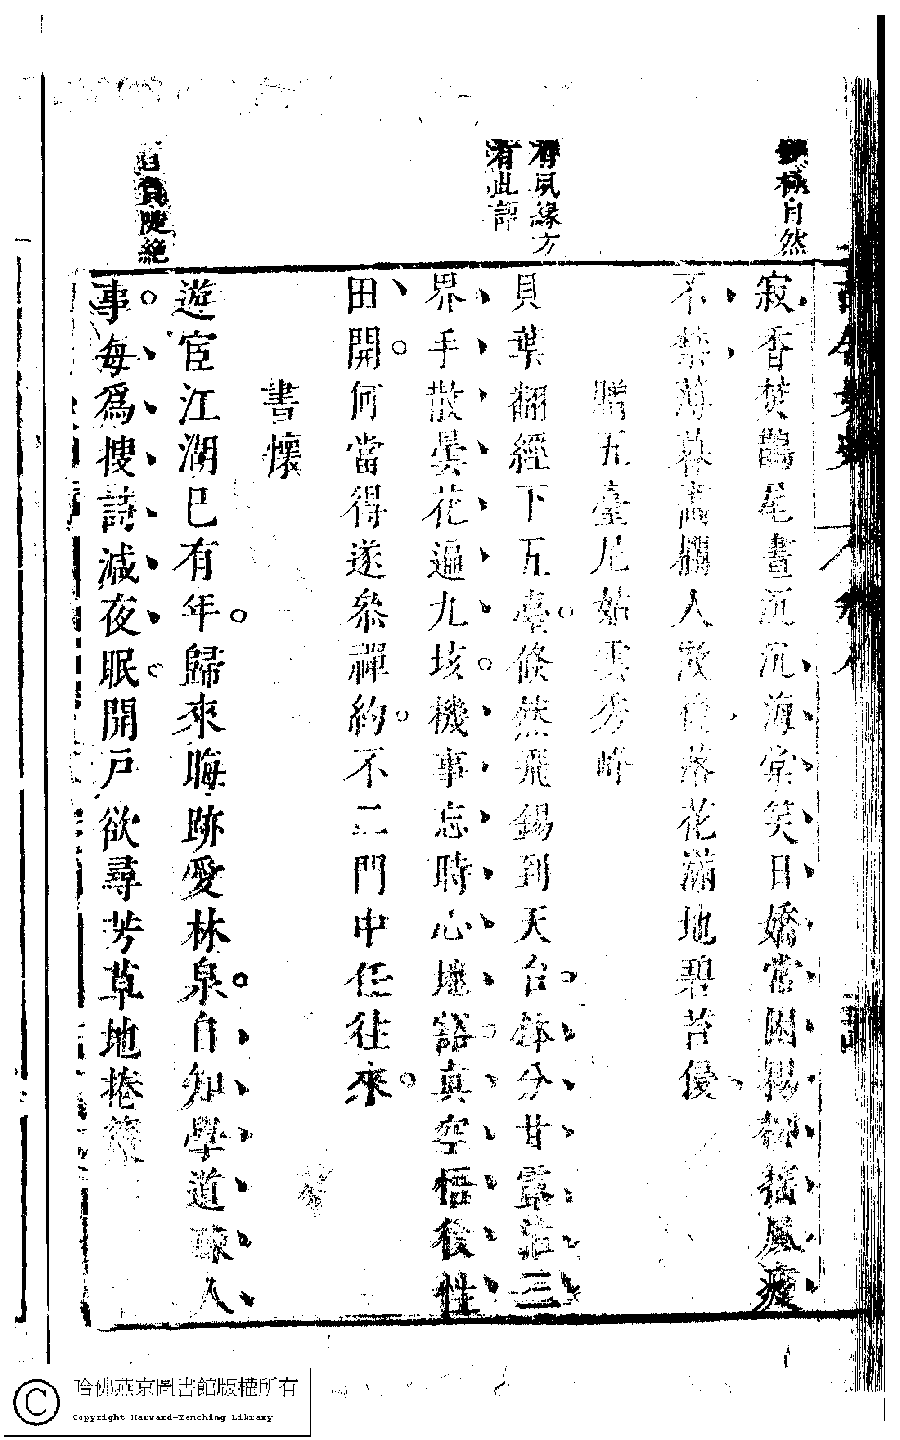 極自然
寂香焚鵲尾晝沉沉海棠笑日嬌常困楊柳搖風瘦
不禁薄暮畫欄人散後落花滿地碧苔侵
有夙緣方
有此評
贈五臺尼姑雲秀峰
貝葉翻經下五臺倏然飛錫到天台鉢分甘露沾三
界手散曇花遍九垓機事忘時心壙豁真空悟後性
田開何當得遂參禪約不二門中任往來
書懷
遊宦江湖已有年歸來晦跡愛林泉自知學道疎人
事每爲搜詩減夜眠開戶欲尋芳草地捲簾
陡絕
哈佛燕京圖書館版權所有
Copyright Harvard-Yenching Library